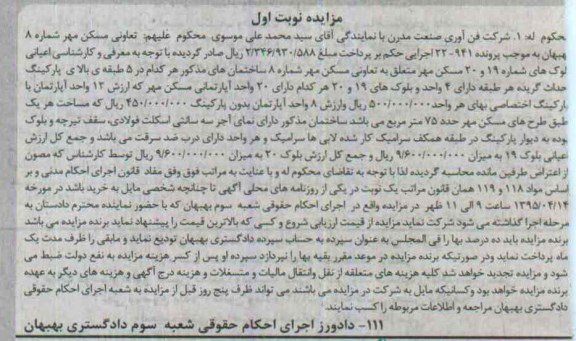 مزایده نوبت اول
محکوم له: ۱. شرکت فن آوری صنعت مدرن با نمایندگی آقای سید محمد علی موسوی محکوم علیهم: تعاونی مسکن مهر شماره ۸
بهبهان به موجب پرونده ۹۴۱-۲۲ اجرایی حکم بر پرداخت مبلغ ۲/۳۴۶/۹۳۰/۵۸۸ ریال صادر گردیده با توجه به معرفی و کارشناسی اعیانی
بلوک های شماره ۱۹ و ۲۰ مسکن مهر متعلق به تعاونی مسکن مهر شماره ۸ ساختمان های مذکور هر کدام در ۵ طبقه ی بالای پارکینگ
احداث گریده هر طبقه دارای ۴ واحد و بلوک های ۱۹ و ۲۰ هر کدام دارای ۲۰ واحد آپارتمانی مسکن مهر که ارزش ۱۲ واحد آپارتمان با
پارکینگ اختصاصی بهای هر واحد ۵۰۰/۰۰۰/۰۰۰ ریال وارزش ۸ واحد آپارتمان بدون پارکینگ ۴۵۰/۰۰۰/۰۰۰ ریال که مساحت هر یک
طبق طرح های مسکن مهر حدد ۷۵ متر مربع می باشد ساختمان مذکور دارای نمای آجر سه سانتی اسکلت فولادی، سقف تیرچه و بلوک
بوده به دیوار پارکینگ در طبقه همکف سرامیک کار شده لابی ها سرامیک و هر واحد دارای درب ضد سرقت می باشد و جمع کل ارزش
اعیانی بلوک ۱۹ به میزان ۹/۶۰۰/۰۰۰/۰۰۰ ریال و جمع کل ارزش بلوک ۲۰ به میزان ۹/۶۰۰/۰۰۰/۰۰۰ ریال توسط کارشناس که مصون
از اعتراض طرفین مانده محاسبه گردیده لذا با توجه به تقاضای محکوم له و با عنایت به مراتب فوق وفق مفاد قانون اجرای احکام مدنی و بر
اساس مواد ۱۱۸ و ۱۱۹ همان قانون مراتب یک نوبت در یکی از روزنامه های محلی آگهی تا چنانچه شخصی مایل به خرید باشد در مورخه
۱۳۹۵/۰۴/۱۴ ساعت ۹ الی ۱۱ ظهر در مزایده واقع در اجرای احکام حقوقی شعبه سوم بهبهان که با حضور نماینده محترم دادستان به
مرحله اجرا گذاشته می شود شرکت نماید مزایده از قیمت ارزیابی شروع و کسی که بالاترین قیمت را پیشنهاد نماید برنده مزایده می باشد
برنده مزایده باید ده درصد بها را فی المجلس به عنوان سپرده به حساب سپرده دادگستری بهبهان تودیع نماید و مابقی را ظرف مدت یک
ماه پرداخت نماید ودر صورتیکه برنده مزایده در موعد مقرر بقیه بها را نپردازد سپرده او پس از کسر هزینه مزایده به نفع دولت ضبط می
شود و مزایده تجدید خواهد شد کلیه هزینه های متعلقه از نقل وانتقال مالیات و متسغلات و هزینه درج آگهی و هزینه های دیگر به عهده
برنده مزایده خواهد بود وکسانیکه مایل به شرکت در مزایده می باشند می تواند ظرف پنج روز قبل از مزایده به شعبه اجرای احکام حقوقی
دادگستری بهبهان مراجعه و اطلاعات مربوطه را کسب نمایند.
۱۱۱- دادورز اجرای احکام حقوقی شعبه سوم دادگستری بهبهان